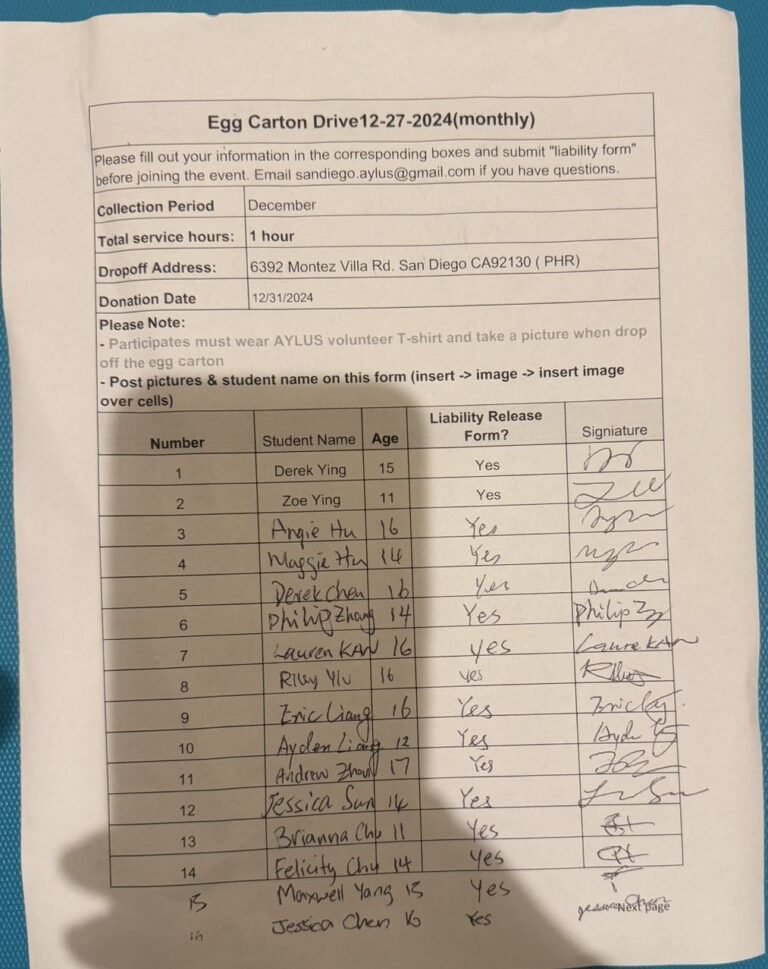 Egg Carton Drive12-27-2024(monthly)
Please fill out your information in the corresponding boxes and submit "liability form"
before joining the event. Email sandiego.aylus@gmail.com if you have questions.
Collection Period December
Total service hours: 1 hour
Dropoff Address: 6392 Montez Villa Rd. San Diego CA92130 ( PHR)
Donation Date 12/31/2024
Please Note:
- Participates must wear AYLUS volunteer T-shirt and take a picture when drop
off the egg carton
- Post pictures & student name on this form (insert -> image -> insert image
over cells)
Number Student Name Age Liability Release Form? Signiature
1 Derek Ying 15 Yes
2 Zoe Ying 11 Yes
3 Angie Hu 16 Yes
4 Maggie Hu 14 Yes
5 Derek Chen 16 Yes
6 Philip Zhang 14 Yes Philip
7 Lauren KAN 16 yes Lauren KAN
8 Riley 16 yes
9 Eric Liang 16 Yes
10 Ayden Liang 12 Yes
11 Andrew 17 Yes
12 Jessica Sun 14 Yes
13 Brianna Chu 11 Yes
14 Felicity Chu 14 Yes
15 Maxwell Yang Yes
16 Jessica Chen Yes Jessica Chen
Next page